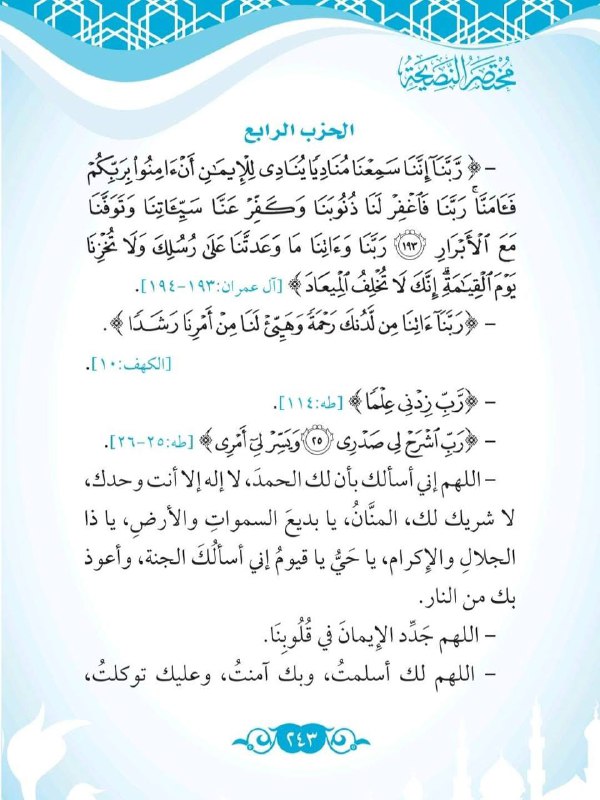 مُخْتَصَرُ النَّصِيحَةِ
الحزب الرابع
– ﴿ رَّبَّنَآ إِنَّنَا سَمِعْنَا مُنَادِيًا يُنَادِى لِلْإِيمَٰنِ أَنْ ءَامِنُوا۟ بِرَبِّكُمْ
فَـَٔامَنَّا ۚ رَبَّنَا فَٱغْفِرْ لَنَا ذُنُوبَنَا وَكَفِّرْ عَنَّا سَيِّـَٔاتِنَا وَتَوَفَّنَا
مَعَ ٱلْأَبْرَارِ ١٩٣ رَبَّنَا وَءَاتِنَا مَا وَعَدتَّنَا عَلَىٰ رُسُلِكَ وَلَا تُخْزِنَا
يَوْمَ ٱلْقِيَٰمَةِ ۗ إِنَّكَ لَا تُخْلِفُ ٱلْمِيعَادَ ﴾ [آل عمران:١٩٣-١٩٤].
– ﴿ رَبَّنَآ ءَاتِنَا مِن لَّدُنكَ رَحْمَةً وَهَيِّئْ لَنَا مِنْ أَمْرِنَا رَشَدًا ﴾.
[الكهف:١٠].
– ﴿ رَّبِّ زِدْنِى عِلْمًا ﴾ [طه:١١٤].
– ﴿ رَبِّ ٱشْرَحْ لِى صَدْرِى ٢٥ وَيَسِّرْ لِىٓ أَمْرِى ﴾ [طه:٢٥-٢٦].
– اللهم إني أسألك بأن لك الحمدَ، لا إله إلا أنت وحدك،
لا شريك لك، المنَّانُ، يا بديعَ السمواتِ والأرضِ، يا ذا
الجلالِ والإكرام، يا حَيُّ يا قيومُ إني أسألُكَ الجنة، وأعوذ
بك من النار.
– اللهم جَدِّد الإيمانَ في قُلُوبِنَا.
– اللهم لك أسلمتُ، وبك آمنتُ، وعليك توكلتُ،
٢٤٣